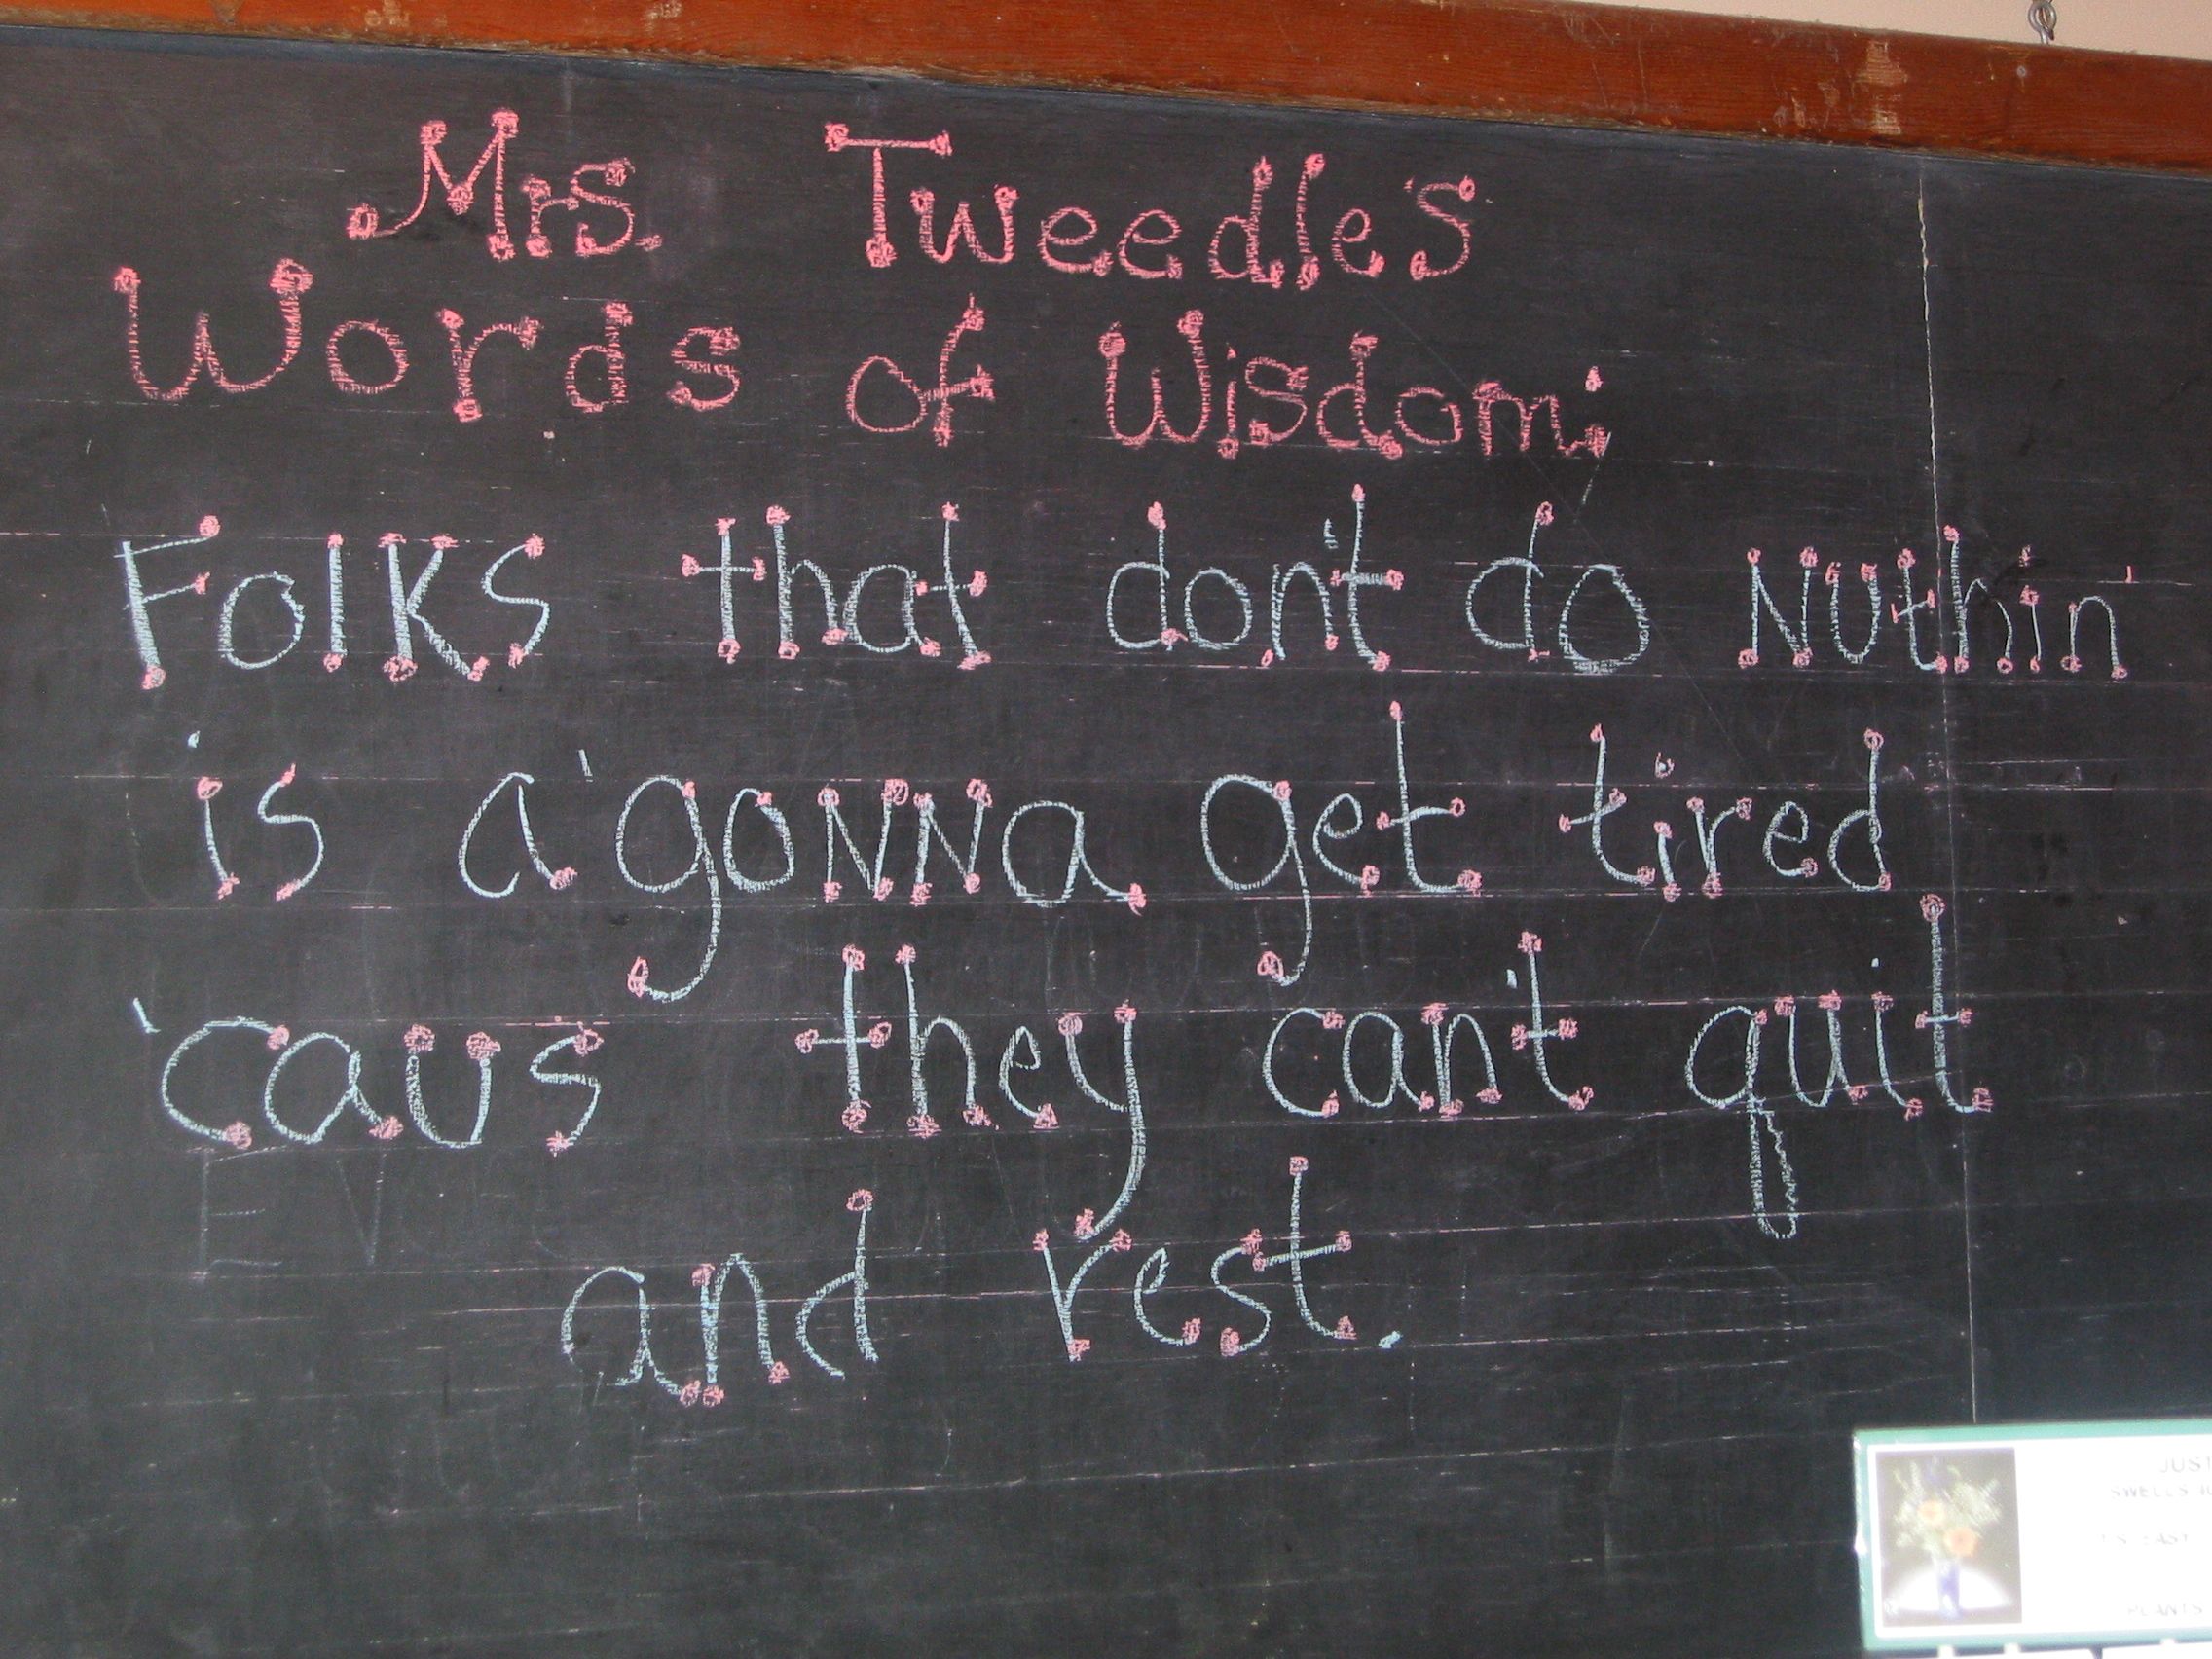 Mrs. Tweedle's
Words of Wisdom:
Folks that don't do nuthin'
is a'gonna get tired
'caus they can't quit
and rest.
PLANTS